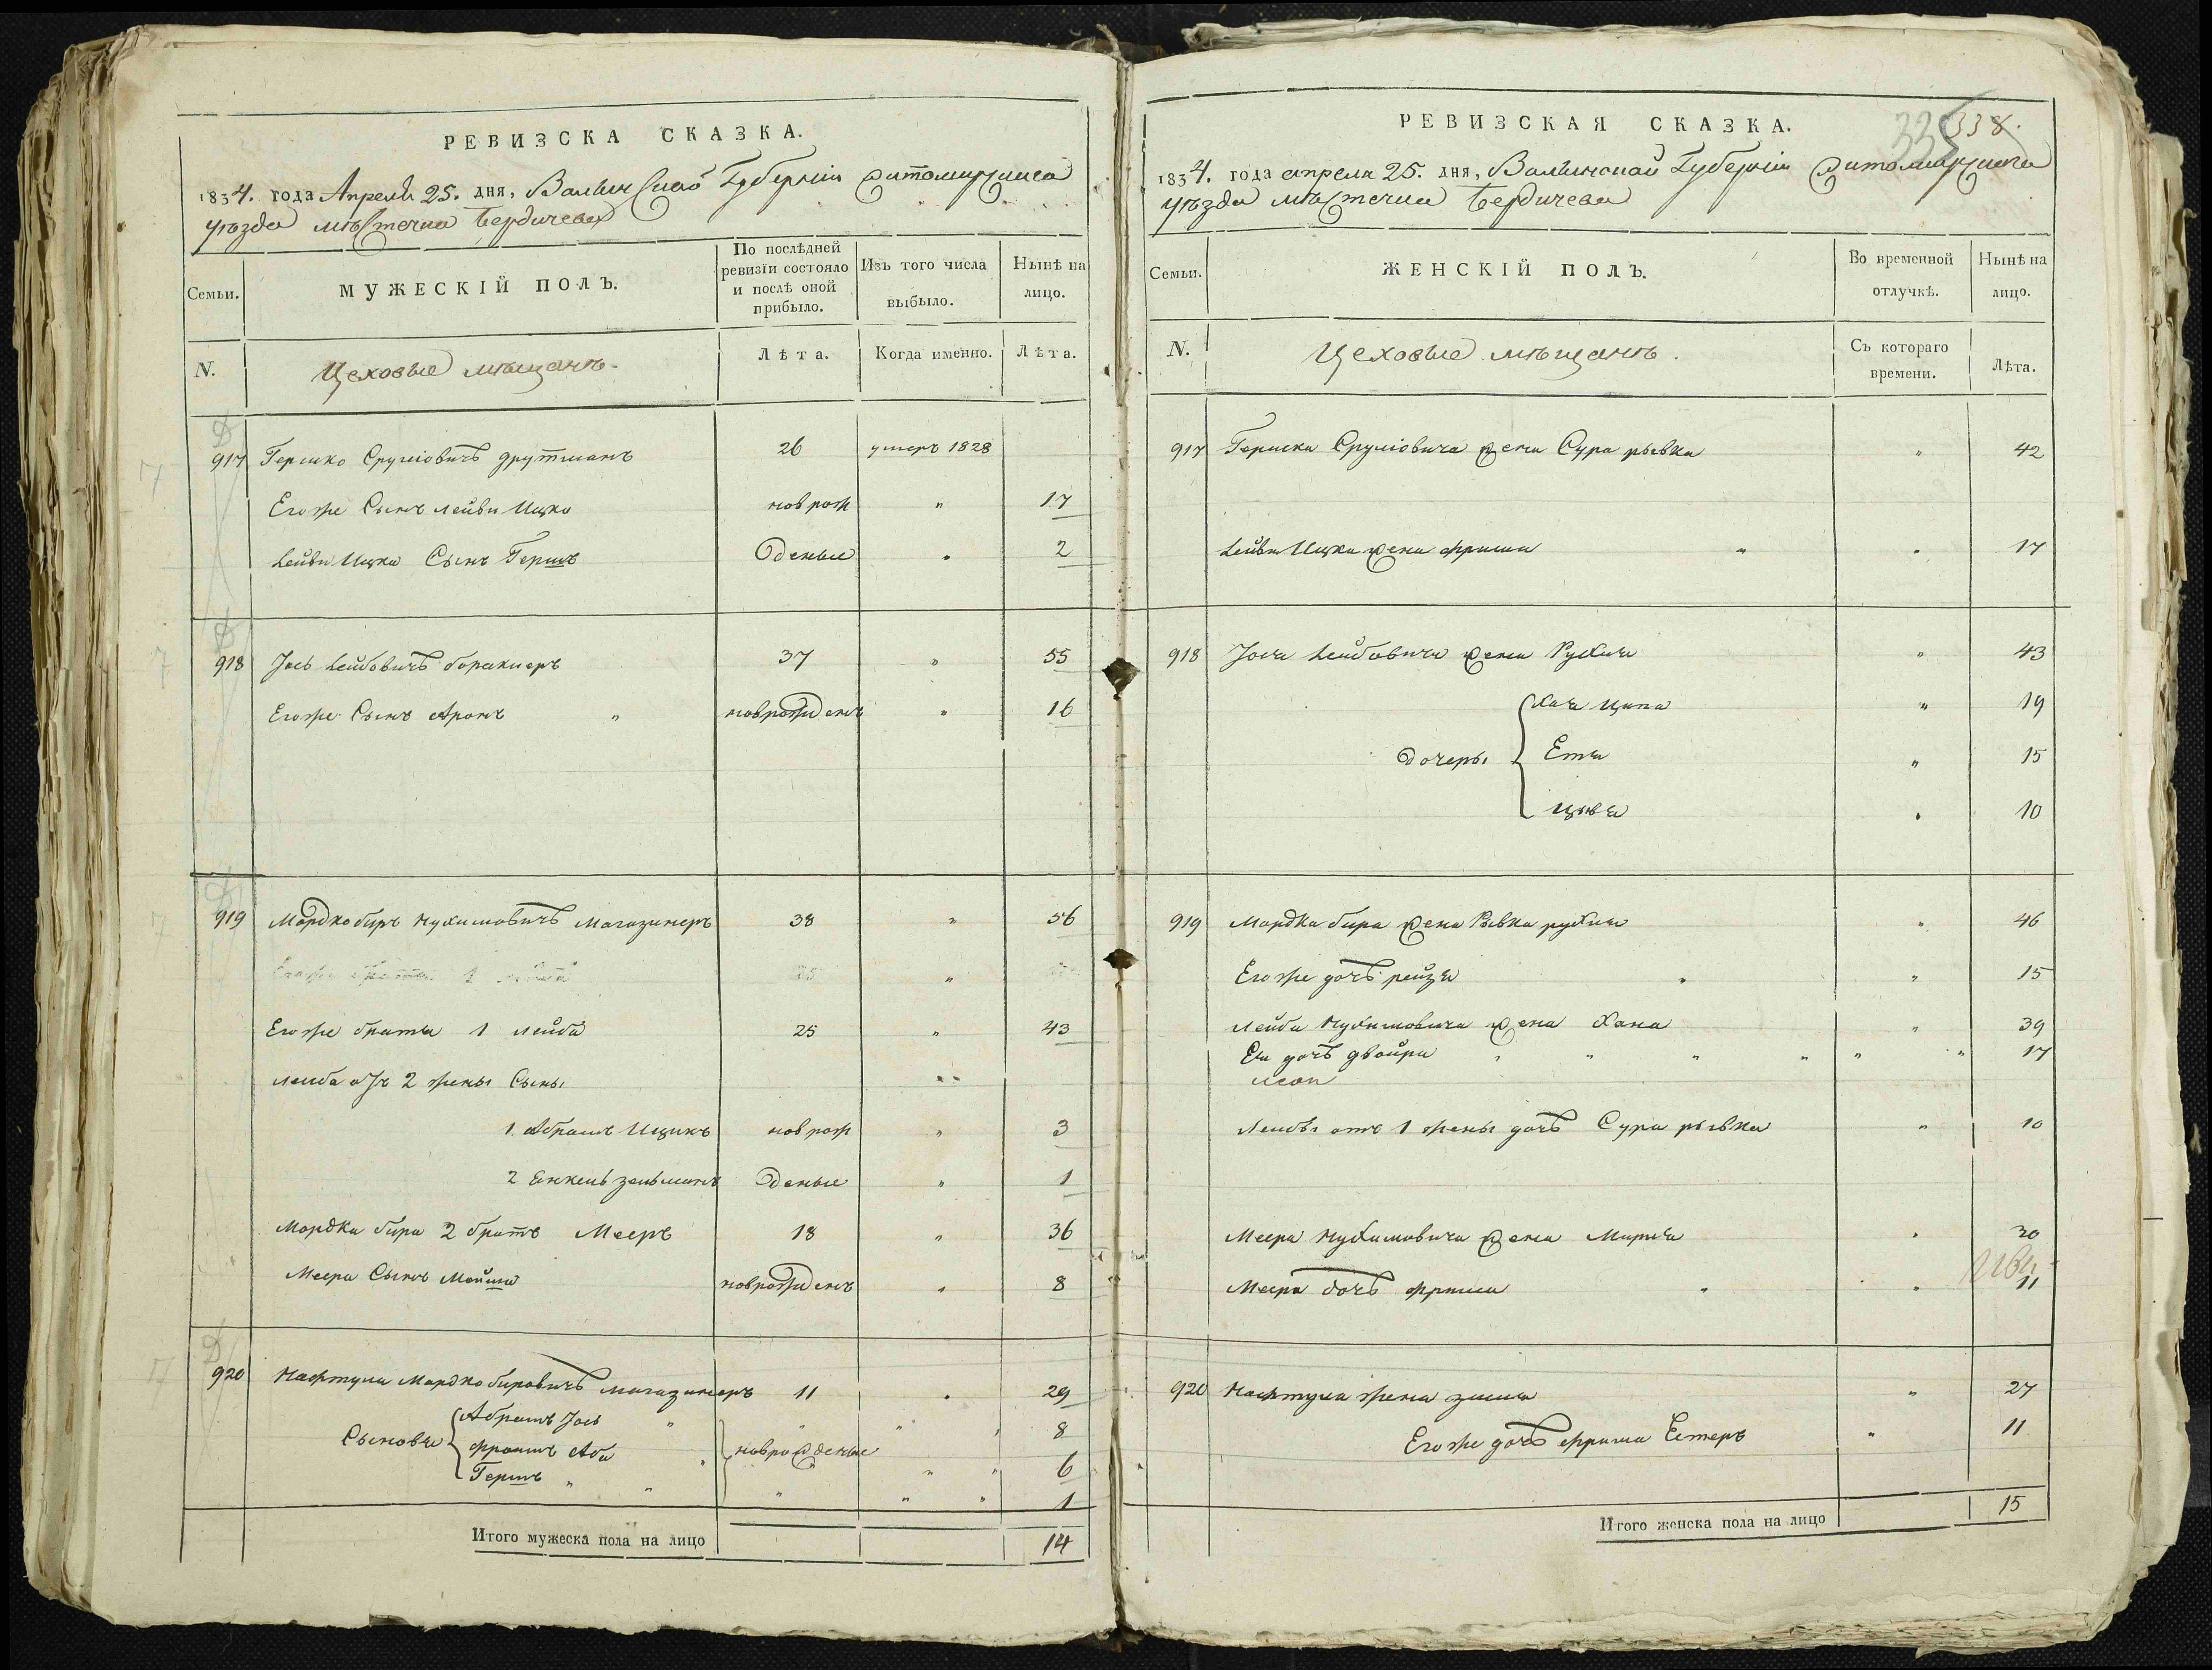 РЕВИЗСКА СКАЗКА.
1834. года Апреля 25. дня, Волынской Губернiи Житомирскаго
уѣзда мѣстечка Бердичева
Семьи.
МУЖЕСКIЙ ПОЛЪ.
По послѣдней ревизiи состояло и послѣ оной прибыло.
Изъ того числа выбыло.
Нынѣ на лицо.
N.
Цеховые мѣщанъ.
Лѣта.
Когда именно.
Лѣта.
917 Гершко Срулiовичъ друтманъ 26 умеръ 1828
Его же Сынъ лейви Ицко новрож " 17
Лейви Ицка Сынъ Гершъ Деные " 2
918 Iось Лейбовичъ 37 " 55
Его же Сынъ Аронъ " новрожденъ " 16
919 Мордко биръ Нухимовичъ Магазинеръ 38 " 56
Его же брата 1 лейба 25 " 43
Лейба отъ 2 жены Сыны " "
1. Абрамъ Ицикъ новрож " 3
2 Янкель зельманъ Деные " 1
Мордка бира 2 братъ Мееръ 18 " 36
Меера Сынъ Мойша новрожденъ " 8
920 Нафтула Мордко бировичъ магазинеръ 11 " 29
Сыновья Абрамъ Iось " " " 8
фроимъ Аба новрожденые " " 6
Гершъ " " " " " 1
Итого мужеска пола на лицо 14
РЕВИЗСКАЯ СКАЗКА.
335 338.
1834. года апреля 25. дня, Волынской Губернiи Житомирскаго
уѣзда мѣстечка Бердичева
Семьи.
ЖЕНСКIЙ ПОЛЪ.
Во временной отлучкѣ.
Нынѣ на лицо.
N.
Цеховые мѣщанъ.
Съ котораго времени.
Лѣта.
917 Гершка Срулiовича жена Сура рывка " 42
Лейви Ицка жена фрима " " 17
918 Iося Лейбовича жена Рухля " 43
Хая Ципа " 19
Дочеры Етя " 15
Цывя " 10
919 Мордка бира жена Рывка рухля " 46
Его же дочъ рейзя " " 15
Лейби Нухимовича жена Хана " 39
Ея дочъ двойра " " " " " " 17
Лейбы отъ 1 жены дочъ Сура рывка " 10
Меера Нухимовича жена Мирля " 30
Меера дочъ фрима " " 11
920 Нафтула жена злата " 27
Его же дочъ фрима Естеръ " 11
Итого женска пола на лицо 15